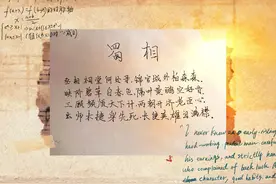 蜀相
丞相祠堂何处寻,锦官城外柏森森。
映阶碧草自春色,隔叶黄鹂空好音。
三顾频烦天下计,两朝开济老臣心。
出师未捷身先死,长使英雄泪满襟。
I never knew an early-rising
hard-working prudent man careful
his earnings, and strictly hone
who complained of back luck. A
character, good habits, and